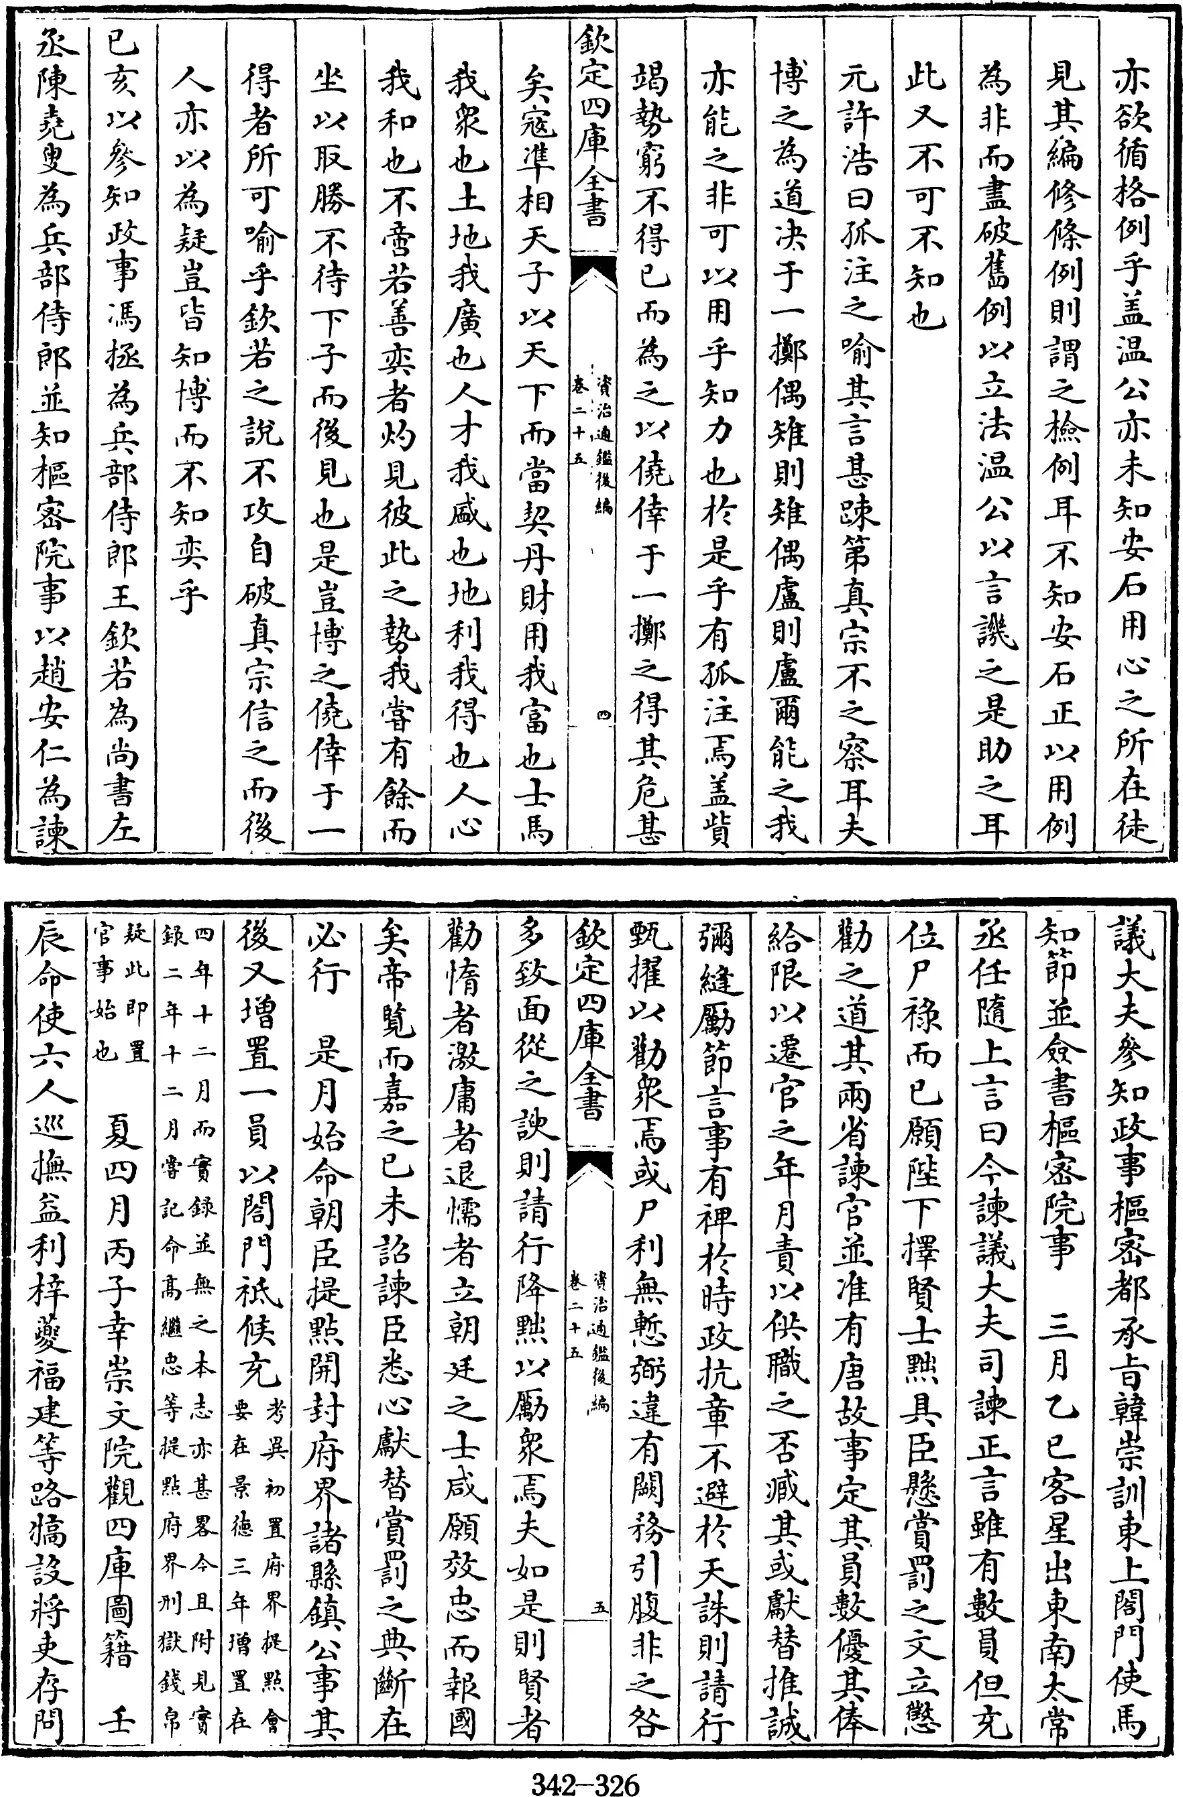 亦欲循格例乎盖温公亦未知安石用心之所在徒
見其編修條例則謂之檢例耳不知安石正以用例
為非而盡破舊例以立法温公以言譏之是助之耳
此又不可不知也
元許浩曰孤注之喻其言甚踈第真宗不之察耳夫
博之為道决于一擲偶雉則雉偶盧則盧爾能之我
亦能之非可以用乎知力也於是乎有孤注焉盖貲
竭勢窮不得已而為之以僥倖于一擲之得其危甚
欽定四庫全書
資治通鑑後編
卷二十五
四
矣寇準相天子以天下而當契丹財用我富也士馬
我衆也土地我廣也人才我盛也地利我得也人心
我和也不啻若善奕者灼見彼此之勢我甞有餘而
坐以取勝不待下子而後見也是豈博之僥倖于一
得者所可喻乎欽若之說不攻自破真宗信之而後
人亦以為疑豈皆知博而不知奕乎
已亥以參知政事馮拯為兵部侍郎王欽若為尚書左
丞陳堯叟為兵部侍郎並知樞密院事以趙安仁為諫
議大夫參知政事樞密都承旨韓崇訓東上閤門使馬
知節並僉書樞密院事 三月乙巳客星出東南太常
丞任隨上言曰今諫議大夫司諫正言雖有數員但充
位尸祿而已願陛下擇賢士黜具臣懸賞罰之文立懲
勸之道其兩省諫官並准有唐故事定其員數優其俸
給限以遷官之年月責以供職之否臧其或獻替推誠
彌縫厲節言事有裨於時政抗章不避於天誅則請行
甄擢以勸衆焉或尸利無慙弼違有闕務引腹非之咎
欽定四庫全書
資治通鑑後編
卷二十五
五
多致面從之諛則請行降黜以厲衆焉夫如是則賢者
勸惰者激庸者退懦者立朝廷之士咸願效忠而報國
矣帝覽而嘉之已未詔諫臣悉心獻替賞罰之典斷在
必行 是月始命朝臣提點開封府界諸縣鎮公事其
後又增置一員以閤門祇候充
考異初置府界提點會
要在景德三年增置在
四年十二月而實録並無之本志亦甚畧今且附見實
録二年十二月嘗記命髙繼忠等提點府界刑獄錢帛
疑此即置
官事始也
夏四月丙子幸崇文院觀四庫圖籍 壬
辰命使六人巡撫益利梓夔福建等路犒設將吏存問
342-326